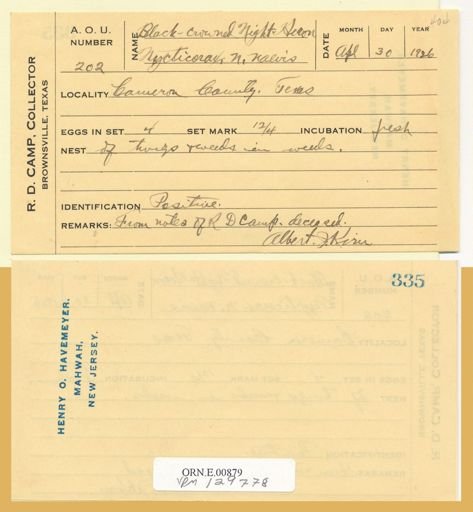 R. D. CAMP, COLLECTOR
BROWNSVILLE, TEXAS
A. O. U.
NUMBER
202
NAME
Black-crowned Night Heron
Nycticorax n. naevis
DATE
MONTH DAY YEAR
Apl 30 1926
LOCALITY Cameron County. Texas
EGGS IN SET 4 SET MARK 12/4 INCUBATION fresh
NEST of twigs & weeds in weeds.
IDENTIFICATION Positive.
REMARKS: From notes of R D Camp. deceased.
Albert J Kirn
335
HENRY O. HAVEMEYER.
MAHWAH,
NEW JERSEY.
ORN.E.00879
VPM 129778